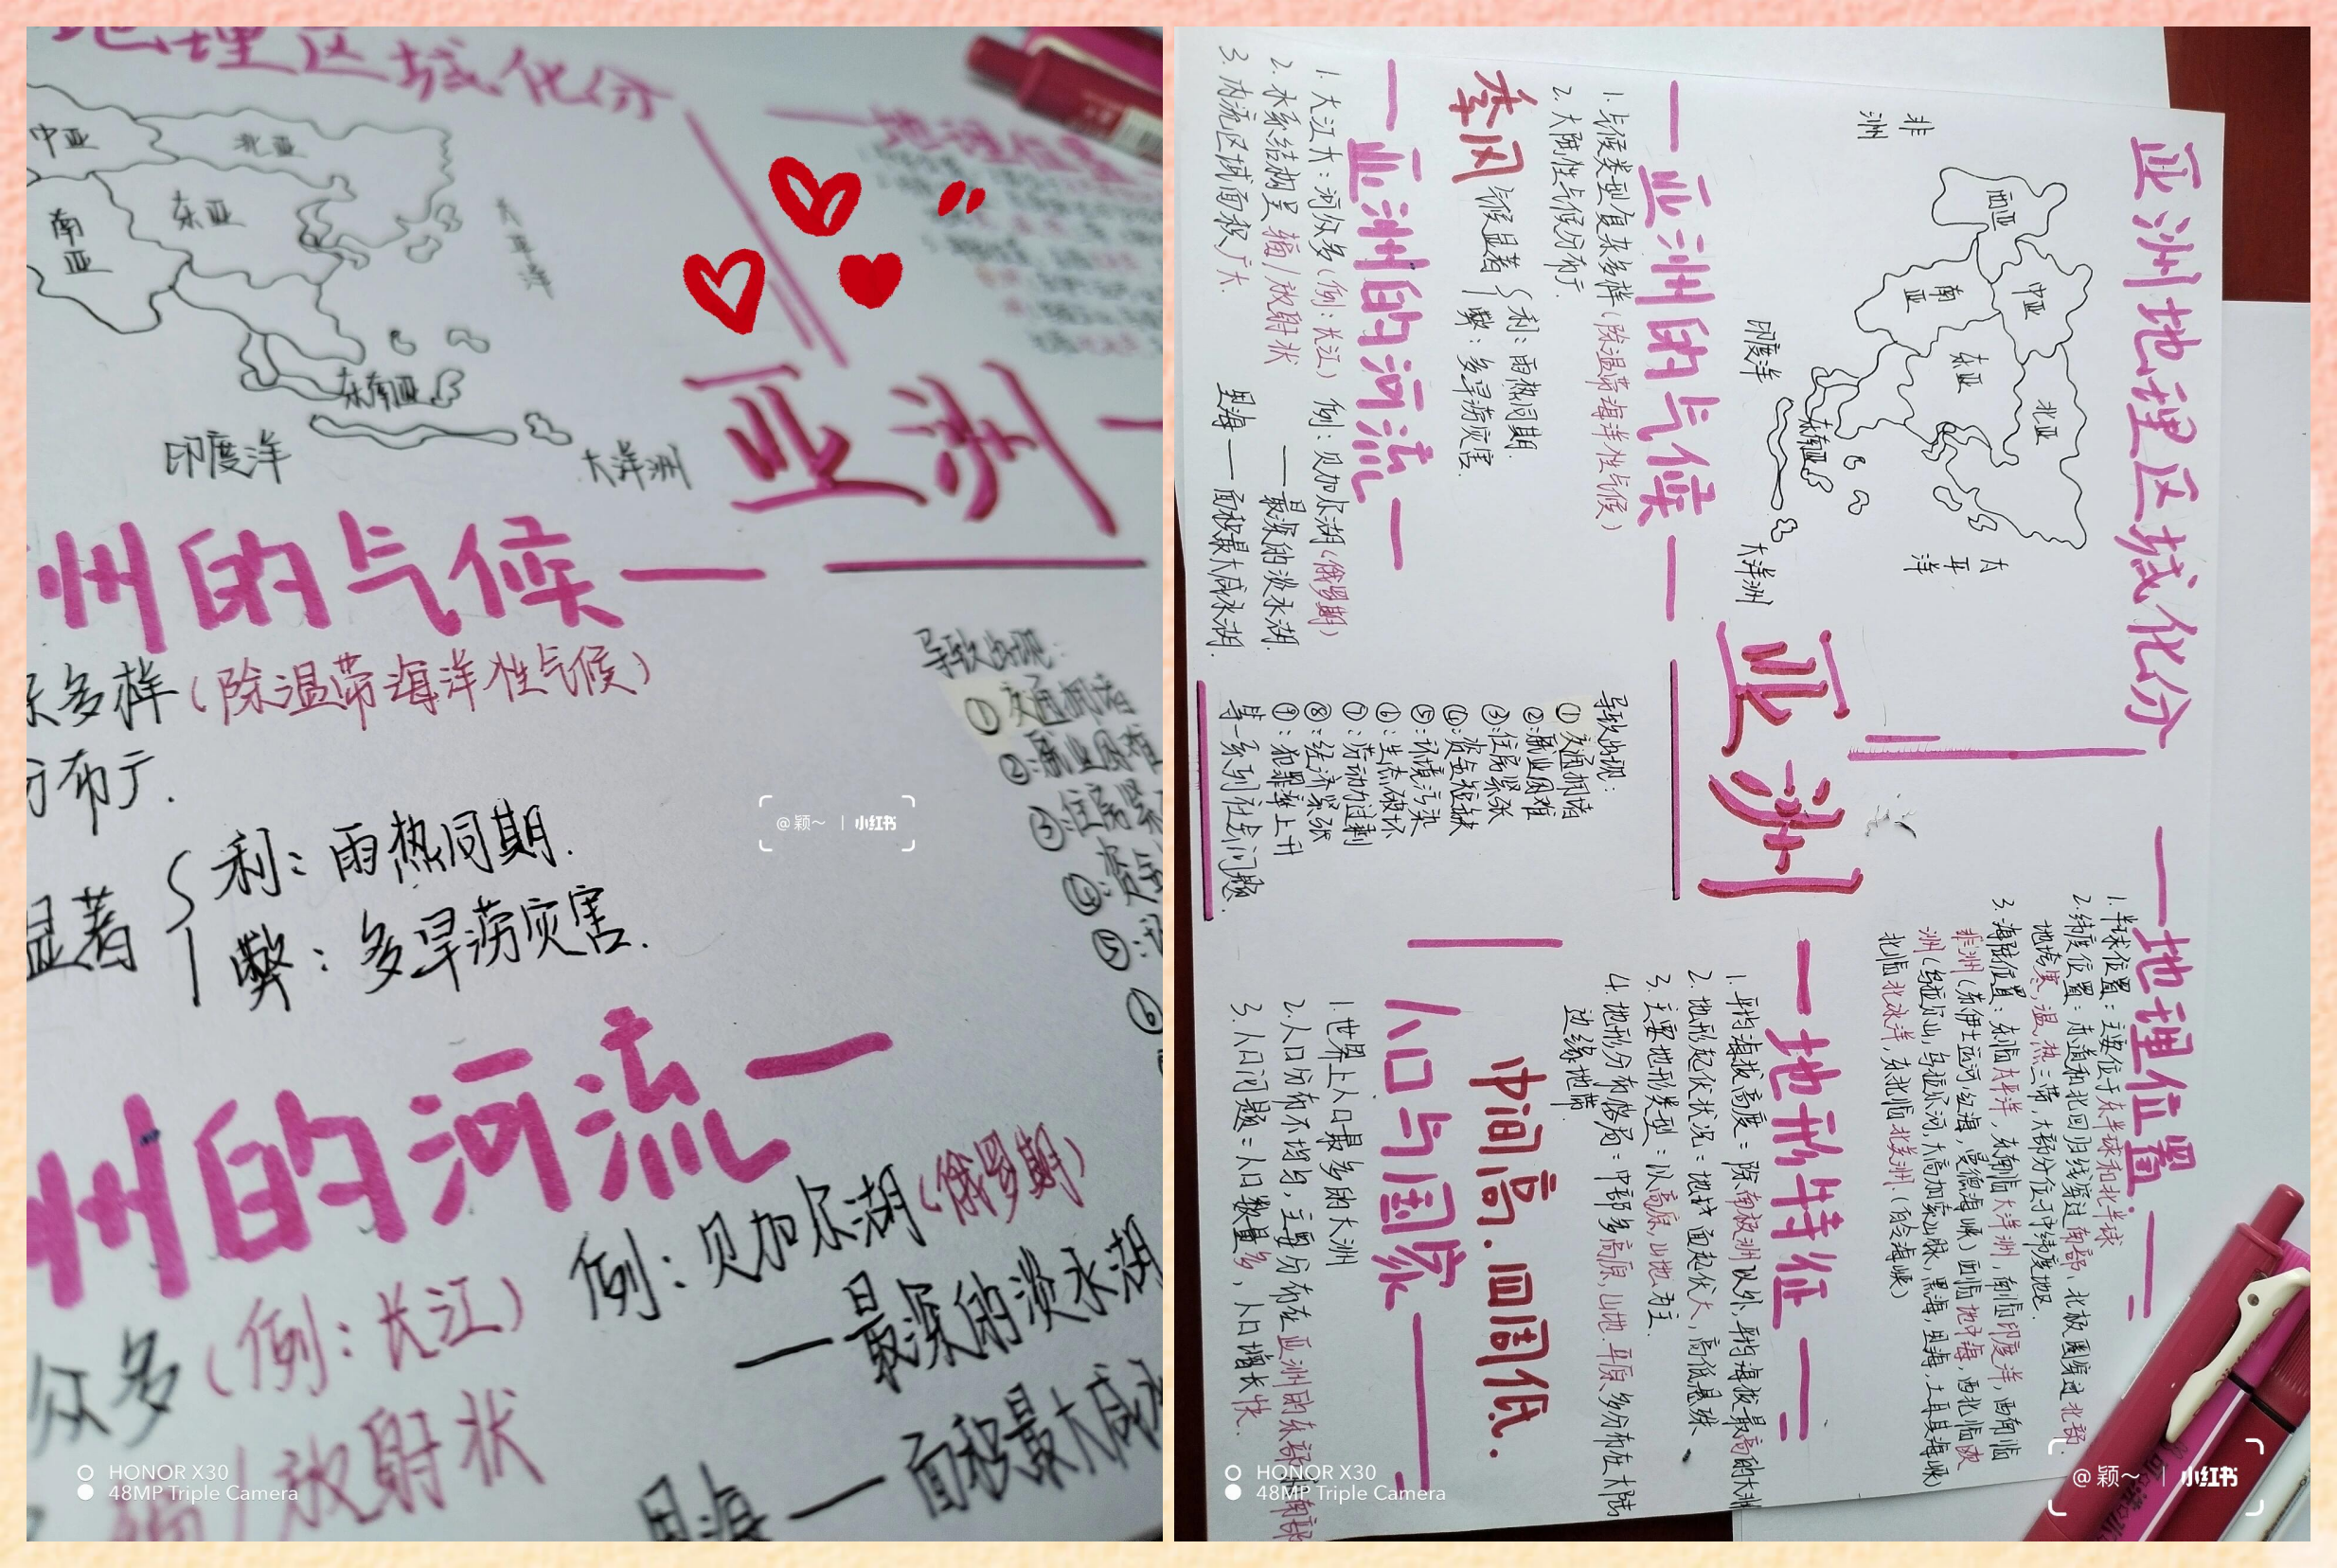 地理区域化分
中亚
北亚
南亚
东亚
太平洋
东南亚
印度洋
大洋洲
地理位置
亚洲
州的气候
多样(除温带海洋性气候)
分布广.
显著
利:雨热同期.
弊:多旱涝灾害.
导致出现:
①交通拥堵
②:就业困难
③:住房紧
④:资金
⑤:
⑥
州的河流
众多(例:长江)
例:贝加尔湖(俄罗斯)
—最深的淡水湖
/放射状
里海—面积最大咸水
@颖~ | 小红书
HONOR X30
48MP Triple Camera
亚洲地理区域化分
非洲
西亚
中亚
南亚
东亚
北亚
东南亚
印度洋
太平洋
大洋洲
亚洲
—亚洲的气候—
1.气候类型复杂多样(除温带海洋性气候)
2.大陆性气候分布广.
季风气候显著
利:雨热同期.
弊:多旱涝灾害.
—亚洲的河流—
1.大江大河众多(例:长江)
2.水系结构呈辐/放射状
3.内流区域面积广大.
例:贝加尔湖(俄罗斯)
—最深的淡水湖.
里海—面积最大咸水湖.
导致出现:
①交通拥堵
②:就业困难
③:住房紧张
④:资金短缺
⑤:环境污染
⑥:生态破坏
⑦:劳动力过剩
⑧:经济紧张
⑨:犯罪率上升
等一系列社会问题.
—地理位置—
1.半球位置:主要位于东半球和北半球
2.纬度位置:赤道和北回归线穿过南部,北极圈穿过北部.
地跨寒,温,热三带,大部分位于中纬度地区.
3.海陆位置:东临太平洋,东南临大洋洲,南临印度洋,西南临
非洲(苏伊士运河,红海,曼德海峡)西临地中海,西北临欧
洲(乌拉尔山,乌拉尔河,大高加索山脉,黑海,里海,土耳其海峡)
北临北冰洋,东北临北美洲(白令海峡)
—地形特征—
1.平均海拔高度:除南极洲以外,平均海拔最高的大洲
2.地形起伏状况:地表面起伏大,高低悬殊.
3.主要地形类型:以高原,山地为主.
4.地形分布格局:中部多高原,山地.平原多分布在大陆
边缘地带.
中间高.四周低.
—人口与国家—
1.世界上人口最多的大洲
2.人口分布不均匀,主要分布在亚洲的东部和南部
3.人口问题:人口数量多,人口增长快.
HONOR X30
48MP Triple Camera
@颖~ | 小红书